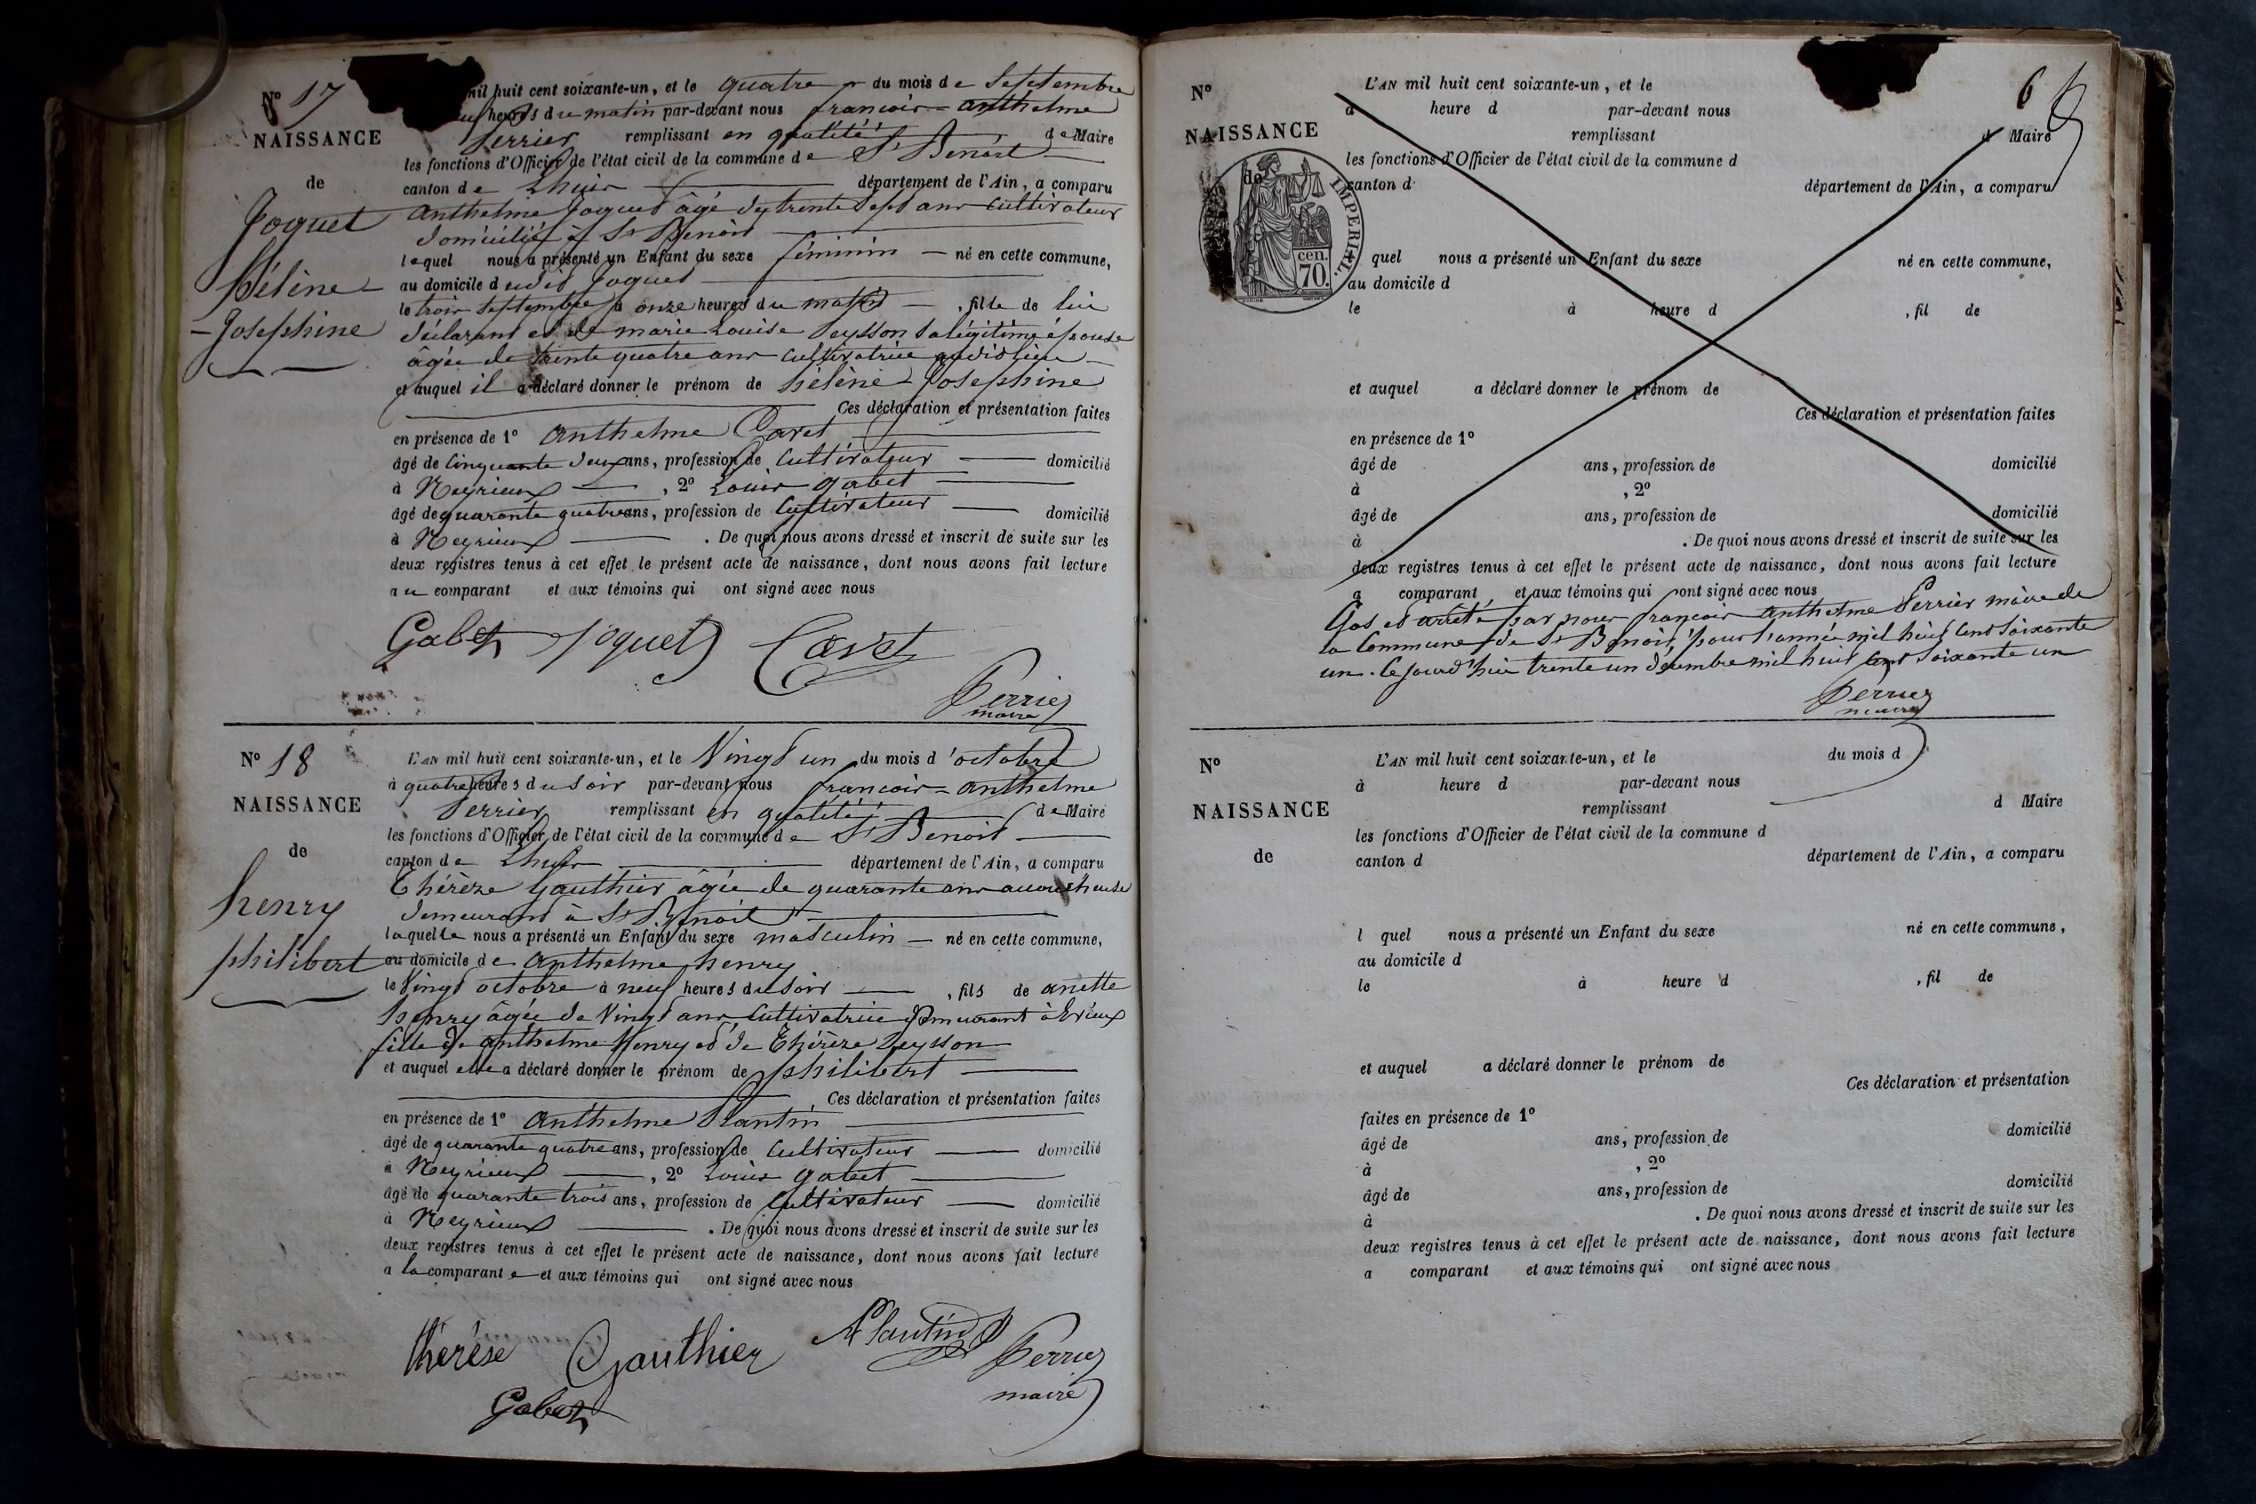 N° 17
NAISSANCE
de
Joquet
hélène
Josephine
mil huit cent soixante-un, et le quatre du mois de Septembre
heures du matin par-devant nous françois-anthelme
Perrier remplissant en qualité de Maire
les fonctions d'Officier de l'état civil de la commune de St Benoit
canton de Lhuis département de l'Ain, a comparu
anthelme Joquet âgé de trente sept ans cultivateur
domicilié à St Benoit
lequel nous a présenté un Enfant du sexe féminin né en cette commune,
au domicile dudit Joquet
le trois septembre à onze heures du matin, fille de lui
déclarant et de marie Louise Peysson sa légitime épouse
âgée de trente quatre ans cultivatrice audit lieu
et auquel il a déclaré donner le prénom de hélène Josephine
Ces déclaration et présentation faites
en présence de 1° anthelme Cavet
âgé de cinquante deux ans, profession de cultivateur domicilié
à Meyrieux, 2° Louis gabet
âgé de quarante quatre ans, profession de cultivateur domicilié
à Meyrieux. De quoi nous avons dressé et inscrit de suite sur les
deux registres tenus à cet effet le présent acte de naissance, dont nous avons fait lecture
au comparant et aux témoins qui ont signé avec nous
Gabet Joquet Cavet
Perrier
maire
N° 18
NAISSANCE
de
henry
philibert
L'AN mil huit cent soixante-un, et le Vingt un du mois d'octobre
à quatre heures du soir par-devant nous françois-anthelme
Perrier remplissant en qualité de Maire
les fonctions d'Officier de l'état civil de la commune de St Benoit
canton de Lhuis département de l'Ain, a comparu
Thérèze Gauthier âgée de quarante ans accoucheuse
demeurant à St Benoit
laquelle nous a présenté un Enfant du sexe masculin né en cette commune,
au domicile de anthelme henry
le Vingt octobre à neuf heures du soir, fils de anette
henry âgée de Vingt ans, cultivatrice demeurant à Evieux
fille de anthelme Henry et de Thérèze Peysson
et auquel elle a déclaré donner le prénom de philibert
Ces déclaration et présentation faites
en présence de 1° anthelme Plantin
âgé de quarante quatre ans, profession de cultivateur domicilié
à Meyrieux, 2° Louis gabet
âgé de quarante trois ans, profession de cultivateur domicilié
à Meyrieux. De quoi nous avons dressé et inscrit de suite sur les
deux registres tenus à cet effet le présent acte de naissance, dont nous avons fait lecture
a la comparante et aux témoins qui ont signé avec nous
thérèse Gauthier APlantin Perrier
maire
Gabet
6
N°
NAISSANCE
de
IMPERIAL.
cen.
70.
L'AN mil huit cent soixante-un, et le
à heure d par-devant nous
remplissant d Maire
les fonctions d'Officier de l'état civil de la commune d
canton d département de l'Ain, a comparu
quel nous a présenté un Enfant du sexe né en cette commune,
au domicile d
le à heure d, fil de
et auquel a déclaré donner le prénom de
Ces déclaration et présentation faites
en présence de 1°
âgé de ans, profession de domicilié
à, 2°
âgé de ans, profession de domicilié
à. De quoi nous avons dressé et inscrit de suite sur les
deux registres tenus à cet effet le présent acte de naissance, dont nous avons fait lecture
a comparant et aux témoins qui ont signé avec nous
Clos et arrêté par nous françois anthelme Perrier maire de
la Commune de St Benoit, pour l'année mil huit cent soixante
un. Cejourd'hui trente un décembre mil huit cent soixante un
Perrier
maire
N°
NAISSANCE
de
L'AN mil huit cent soixante-un, et le du mois d
à heure d par-devant nous
remplissant d Maire
les fonctions d'Officier de l'état civil de la commune d
canton d département de l'Ain, a comparu
l quel nous a présenté un Enfant du sexe né en cette commune,
au domicile d
le à heure d, fil de
et auquel a déclaré donner le prénom de
Ces déclaration et présentation
faites en présence de 1°
âgé de ans, profession de domicilié
à, 2°
âgé de ans, profession de domicilié
à. De quoi nous avons dressé et inscrit de suite sur les
deux registres tenus à cet effet le présent acte de naissance, dont nous avons fait lecture
a comparant et aux témoins qui ont signé avec nous